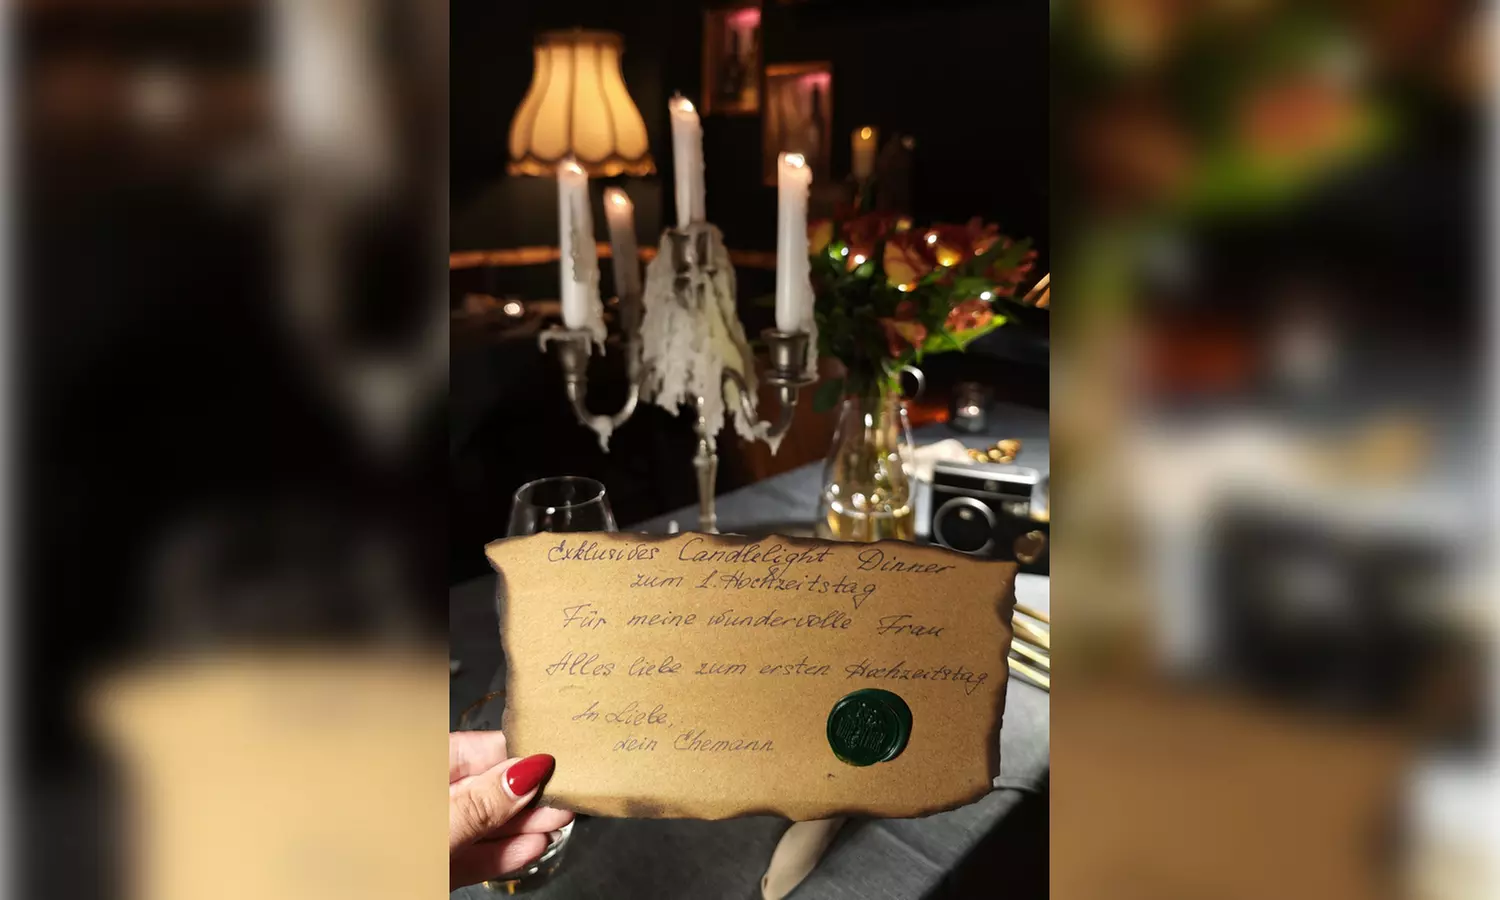 Exklusives Candlelight Dinner
zum 1. Hochzeitstag
Für meine wundervolle Frau
Alles liebe zum ersten Hochzeitstag.
In Liebe,
dein Ehemann